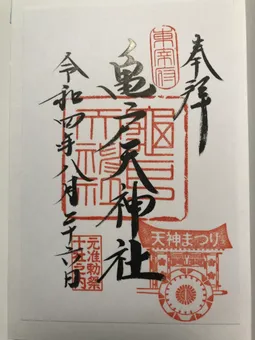 奉拜
東宰府
亀戸天神社
天神まつり
元准勅祭
令和四年八月二十六日